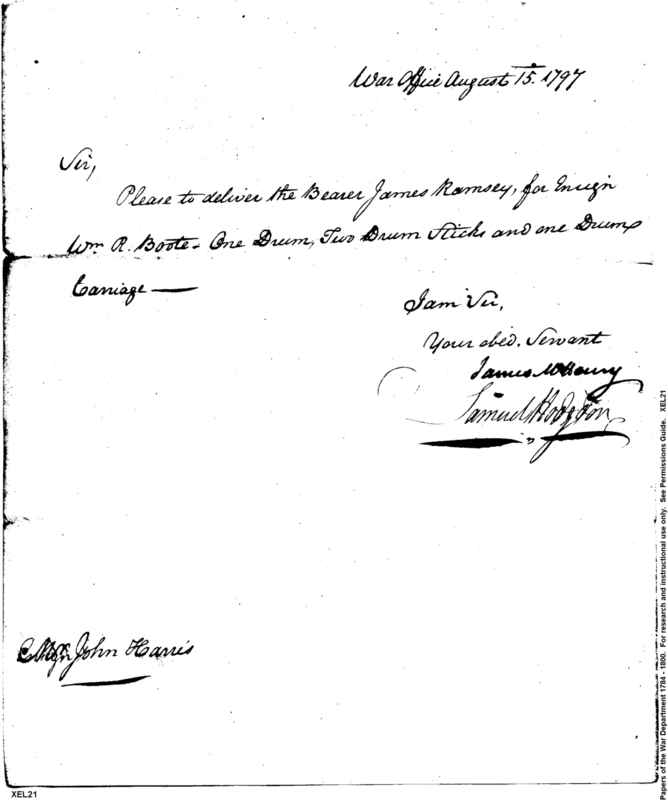 War Office August 15. 1797
Sir,
Please to deliver the Bearer James Ramsey, for Ensign
Wm R. Boote - One Drum, Two Drum Sticks and one Drum
Carriage —
I am Sir,
Your obed. Servant
James McHenry
Samuel Hodgdon
John Harris
XEL21
Papers of the War Department 1784 - 1800. For research and instructional use only. See Permissions Guide. XEL21